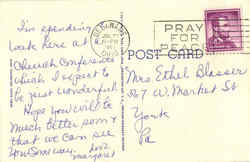 I'm spending
week here at
Church Conference
which I expect to
be just wonderful.
Hope you will be
much better soon &
that we can see
you someway.
Love
Margaret
PRAY
FOR
PEACE
POST CARD
Mrs Ethel Blasser
W. Market St
York
Pa